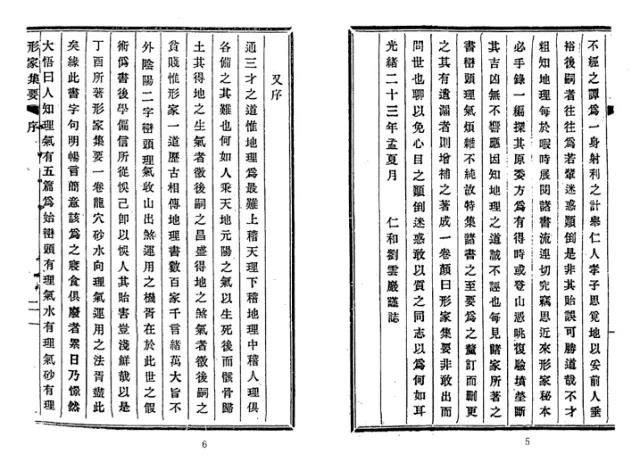 不經之譚爲一身射利之計舉仁人孝子思覓地以安前人垂
裕後嗣者往往爲若輩迷惑顚倒是非其貽誤可勝道哉不才
粗知地理每於暇時展閱諸書流連切究竊思近來形家秘本
必手錄一編探其原委方爲有得時或登山憑眺復驗墳塋斷
其吉凶無不響應因知地理之道誠不誣也每見諸家所著之
書巒頭理氣煩雜不純故特集諸書之至要爲之釐訂而刪更
之其有遺漏者則增補之著成一卷顏曰形家集要非敢出而
問世也聊以免心目之顚倒迷惑敢以質之同志以爲何如耳
光緒二十三年孟夏月 仁和劉雲巖謹誌
5
又序
通三才之道惟地理爲最難上稽天理下稽地理中稽人理俱
各備之其難也何如人乘天地元陽之氣以生死後而骸骨歸
土其得地之生氣者徵後嗣之昌盛得地之煞氣者徵後嗣之
貧賤惟形家一道歷古相傳地理書數百家千言緒萬大旨不
外陰陽二字巒頭理氣收山出煞運用之機胥在於此世之假
術僞書後學偏信所從悞己卽以悞人其貽害豈淺鮮哉以是
丁酉所著形家集要一卷龍穴砂水向理氣運用之法胥盡此
矣緣此書字句明暢言簡意該爲之寢食俱廢者累日乃憬然
大悟曰人知理氣有五篇爲始巒頭有理氣水有理氣砂有理
形家集要 序
6